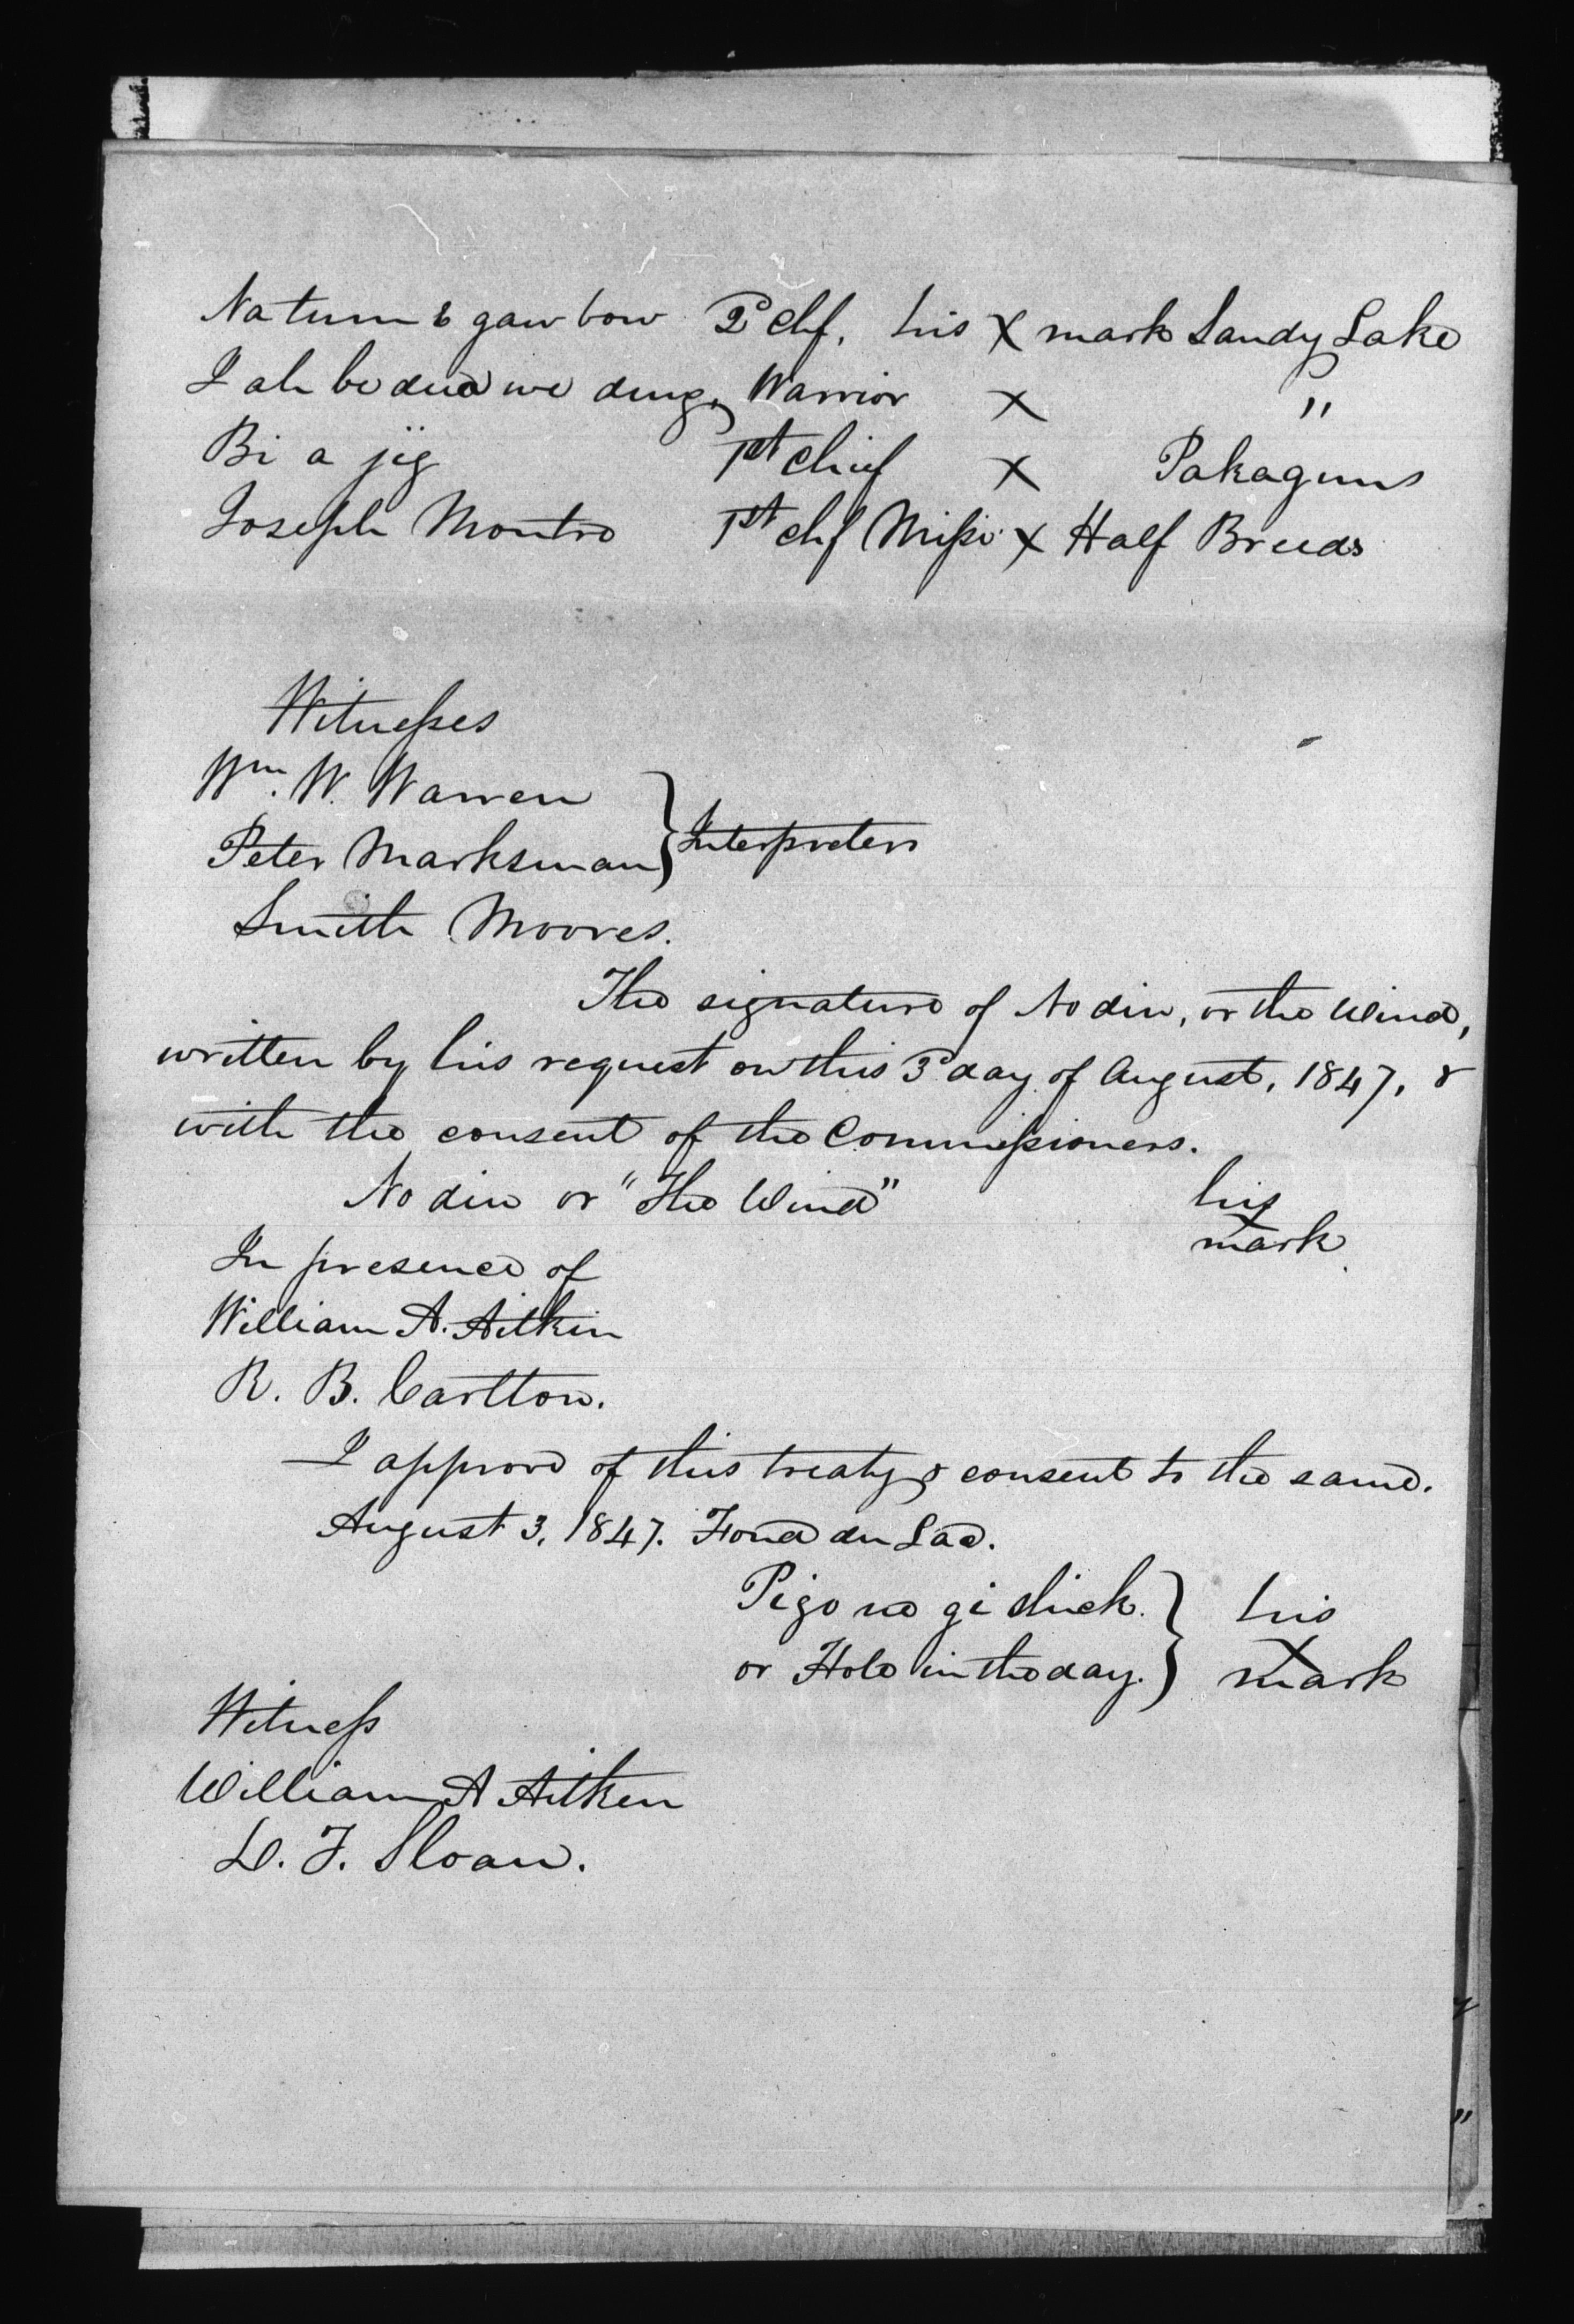 Na tum e gaw bow 2d chf. his X mark Sandy Lake
I ah be dua we dung, Warrior X "
Bi a jig 1st Chief X Pakagums
Joseph Montro 1st chf Missi X Half Breeds
Witnesses
Wm. W. Warren
Peter Marksman } Interpreters
Smith Moores.
The signature of No din, or the Wind,
written by his request on this 3d day of August, 1847, &
with the consent of the Commissioners.
No din or "The Wind" his X mark
In presence of
William A. Aitkin
R. B. Carlton.
I approve of this treaty & consent to the same.
August 3, 1847. Fond du Lac.
Po go ne gi shick.
or Hole in the day. } his X mark
Witness
William A Aitken
D. T. Sloan.